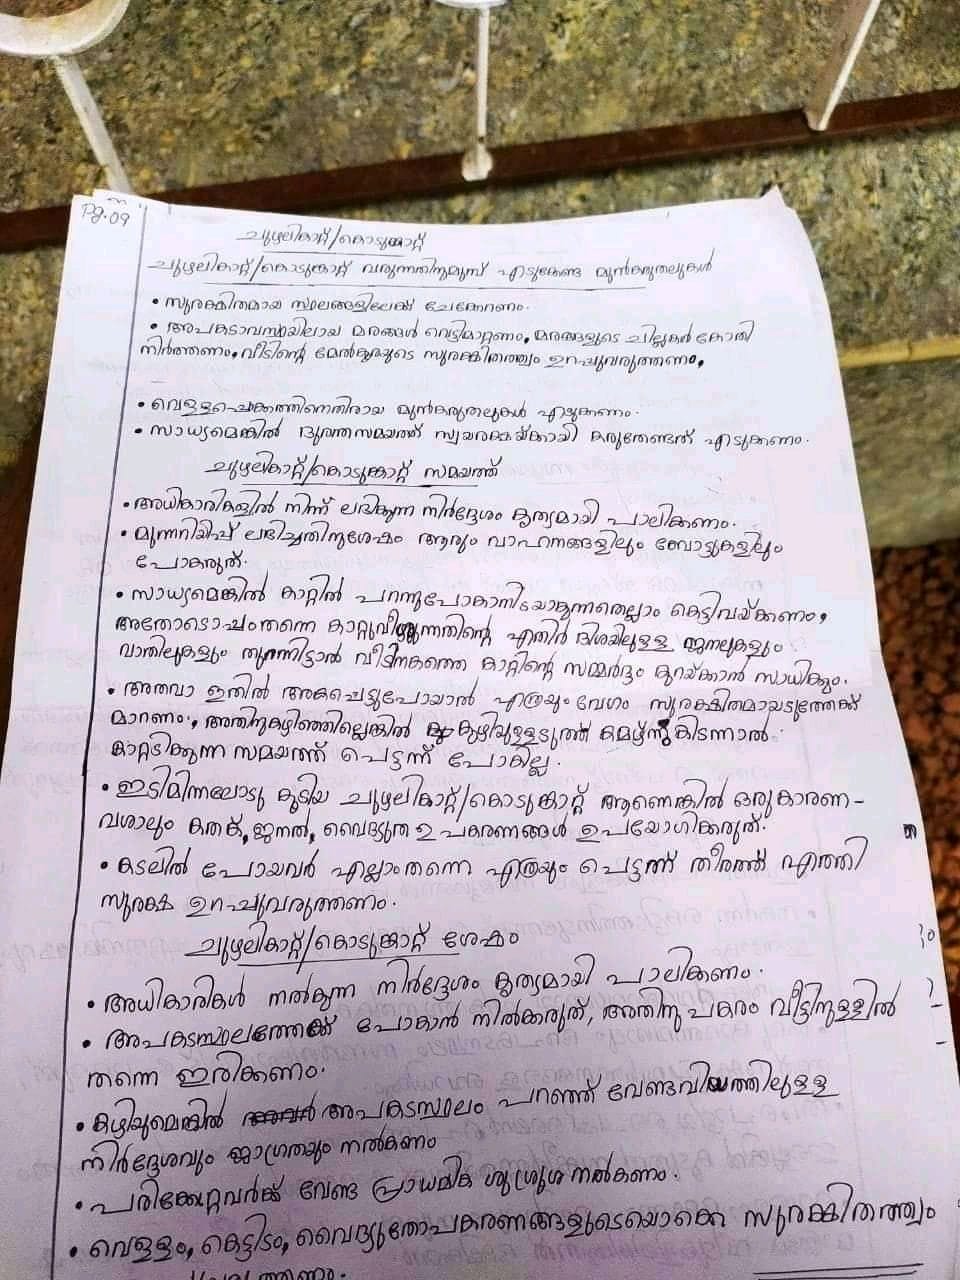 Pg.09
ചുഴലികാറ്റ്/കൊടുങ്കാറ്റ്
ചുഴലികാറ്റ്/കൊടുങ്കാറ്റ് വരുന്നതിനുമുമ്പ് എടുക്കേണ്ട മുൻകരുതലുകൾ
• സുരക്ഷിതമായ സ്ഥലങ്ങളിലേക്ക് ചേക്കേറണം.
• അപകടാവസ്ഥയിലായ മരങ്ങൾ വെട്ടിമാറ്റണം, മരങ്ങളുടെ ചില്ലകൾ കോതി
നിർത്തണം, വീടിന്റെ മേൽക്കൂരയുടെ സുരക്ഷിതത്ത്വം ഉറച്ചുവരുത്തണം,
• വെള്ളപ്പൊക്കത്തിനെതിരായ മുൻകരുതലുകൾ എടുക്കണം.
• സാധ്യമെങ്കിൽ ദുരന്തസമയത്ത് സ്വയരക്ഷയ്ക്കായി കരുതേണ്ടത് എടുക്കണം.
ചുഴലികാറ്റ്/കൊടുങ്കാറ്റ് സമയത്ത്
• അധികാരികളിൽ നിന്ന് ലഭിക്കുന്ന നിർദ്ദേശം കൃത്യമായി പാലിക്കണം.
• മുന്നറിയിപ്പ് ലഭിച്ചതിനുശേഷം ആരും വാഹനങ്ങളിലും ബോട്ടുകളിലും
പോകരുത്.
• സാധ്യമെങ്കിൽ കാറ്റിൽ പറന്നുപോകാനിടയാകുന്നതെല്ലാം കെട്ടിവയ്ക്കണം,
അതോടൊപ്പംതന്നെ കാറ്റുവീശുന്നതിന്റെ എതിർ ദിശയിലുള്ള ജനലുകളും
വാതിലുകളും തുറന്നിട്ടാൽ വീടിനകത്തെ കാറ്റിന്റെ സമ്മർദ്ദം കുറയ്ക്കാൻ സാധിക്കും.
• അഥവാ ഇതിൽ അകപ്പെട്ടുപോയാൽ എത്രയുംവേഗം സുരക്ഷിതമായടുത്തേക്ക്
മാറണം. അതിനുകഴിഞ്ഞില്ലെങ്കിൽ കുഴിവുള്ളടുത്ത് കമഴ്ന്നുകിടന്നാൽ
കാറ്റടിക്കുന്ന സമയത്ത് പെട്ടന്ന് പോകില്ല.
• ഇടിമിന്നലോടു കൂടിയ ചുഴലികാറ്റ്/കൊടുങ്കാറ്റ് ആണെങ്കിൽ ഒരുകാരണ-
വശാലും കതക്, ജനൽ, വൈദ്യുത ഉപകരണങ്ങൾ ഉപയോഗിക്കരുത്.
• കടലിൽ പോയവർ എല്ലാംതന്നെ എത്രയും പെട്ടന്ന് തീരത്ത് എത്തി
സുരക്ഷ ഉറച്ചുവരുത്തണം.
ചുഴലികാറ്റ്/കൊടുങ്കാറ്റ് ശേഷം
• അധികാരികൾ നൽകുന്ന നിർദ്ദേശം കൃത്യമായി പാലിക്കണം.
• അപകടസ്ഥലത്തേക്ക് പോകാൻ നിൽക്കരുത്, അതിനു പകരം വീട്ടിനുള്ളിൽ
തന്നെ ഇരിക്കണം.
• കഴിയുമെങ്കിൽ അപകടസ്ഥലം പറഞ്ഞ് വേണ്ടവിധത്തിലുള്ള
നിർദ്ദേശവും ജാഗ്രതയും നൽകണം
• പരിക്കേറ്റവർക്ക് വേണ്ട പ്രാഥമിക ശുശ്രൂശ നൽകണം.
• വെള്ളം, കെട്ടിടം, വൈദ്യുതോപകരണങ്ങളുടെയൊക്കെ സുരക്ഷിതത്ത്വം